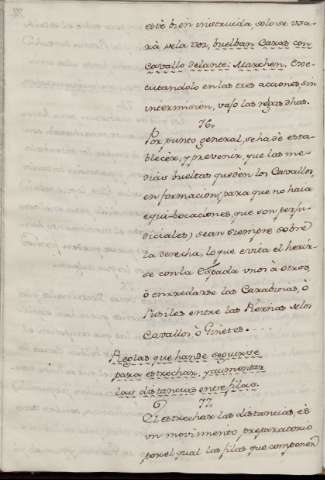 esté bien instruida solo se usa-
rá de la voz, buelban Caras con
Cavallo delante: Marchen. Exe-
cutandolo en las tres acciones, sin
intermision, vajo las reglas dhas.
76.
Por punto general, se há de esta-
blecer, y prevenir, que las me-
dias bueltas queden los Cavallos
en formacion, para que no haia
equibocaciones, que son perju-
diciales, sean siempre sobre
la derecha, lo que evita el herir-
se con la Espada unos á otros,
ó enrredarse las Carabinas, ó
Fusiles entre las Riendas de los
Cavallos, ó Ginetes.
Reglas que han de seguirse
para estrechar, y aumentar
las distancias entre filas.
77
El estrechar las distancias, és
un movimiento preparatorio
por el qual las filas que componen